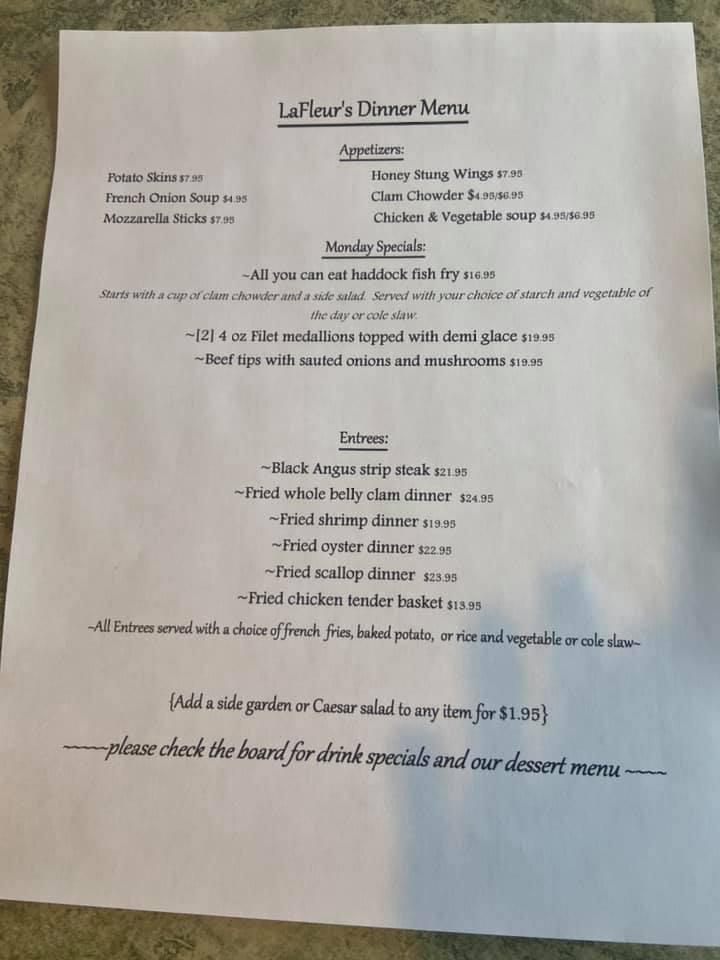 LaFleur's Dinner Menu
Appetizers:
Potato Skins $7.95
Honey Stung Wings $7.95
French Onion Soup $4.95
Clam Chowder $4.95/$6.95
Mozzarella Sticks $7.95
Chicken & Vegetable soup $4.95/$6.95
Monday Specials:
~All you can eat haddock fish fry $16.95
Starts with a cup of clam chowder and a side salad. Served with your choice of starch and vegetable of
the day or cole slaw.
~[2] 4 oz Filet medallions topped with demi glace $19.95
~Beef tips with sauted onions and mushrooms $19.95
Entrees:
~Black Angus strip steak $21.95
~Fried whole belly clam dinner $24.95
~Fried shrimp dinner $19.95
~Fried oyster dinner $22.95
~Fried scallop dinner $23.95
~Fried chicken tender basket $13.95
~All Entrees served with a choice of french fries, baked potato, or rice and vegetable or cole slaw~
{Add a side garden or Caesar salad to any item for $1.95}
~~~~please check the board for drink specials and our dessert menu ~~~~